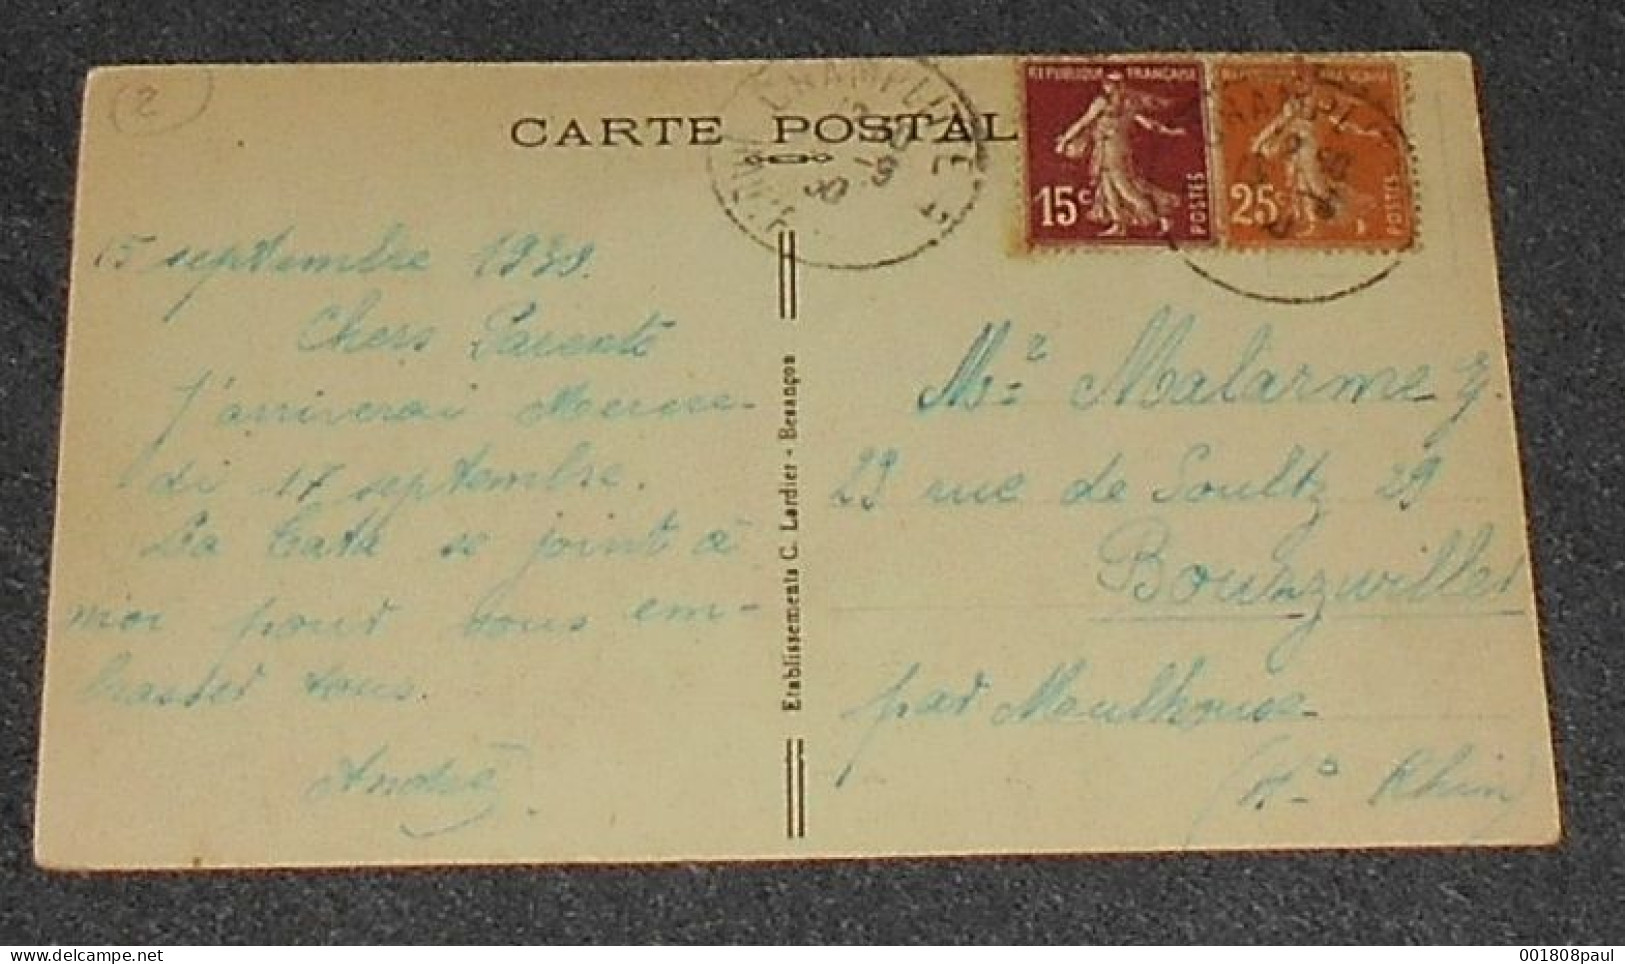 2
CARTE POSTAL
CHAMPLITTE
REPUBLIQUE FRANÇAISE
15c
POSTES
REPUBLIQUE FRANÇAISE
25c
POSTES
15 septembre 1930.
Chers Parents
J'arriverai Mercre-
di 17 septembre.
La Tata se joint à
moi pour vous em-
brasser tous.
André
Etablissements C. Lardier - Besançon
Mr Malarme
29 rue de Soultz 29
Bourtzwiller
par Mulhouse
(Ht Rhin)
delcampe.net
001808paul